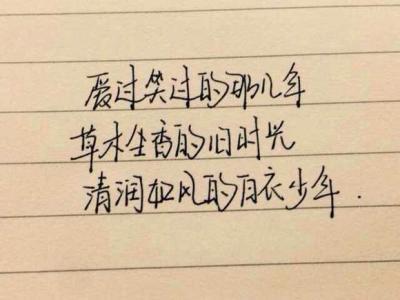 爱过笑过的那几年
草木生香的旧时光
清润如风的白衣少年.